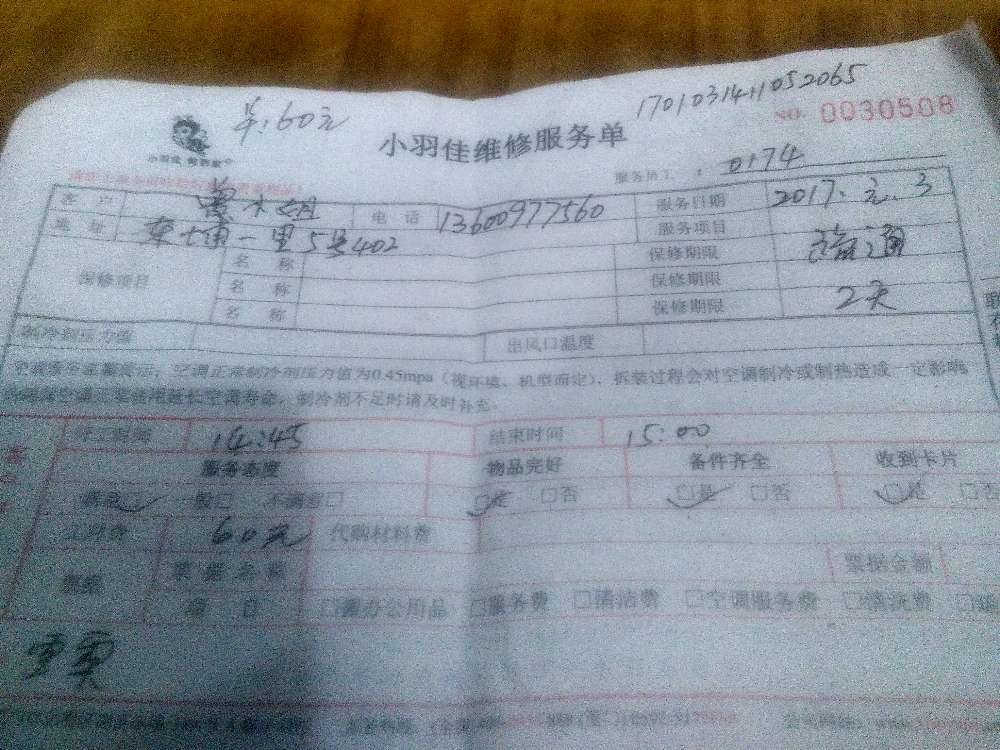 单:60元
1701031411052065
小羽佳维修服务单
NO. 0030508
服务员工: 0174
客户 电话 13600977560 服务日期 2017.元.3
地址 一里5号402 服务项目 疏通
保修项目 名称 保修期限
名称 保修期限
名称 保修期限 2天
制冷剂压力值 出风口温度
空调正常制冷剂压力值为0.45mpa(视环境、机型而定),拆装过程会对空调制冷或制热造成一定影响
空调正常使用延长空调寿命,制冷剂不足时请及时补充。
开工时间 14:45 结束时间 15:00
服务态度 物品完好 备件齐全 收到卡片
满意□ 一般□ 不满意□ □是 □否 □是 □否 □是 □否
工时费 60元 代购材料费
票据 票据名称 票据金额
项目 □办公用品 □服务费 □清洁费 □空调服务费 □清洗费